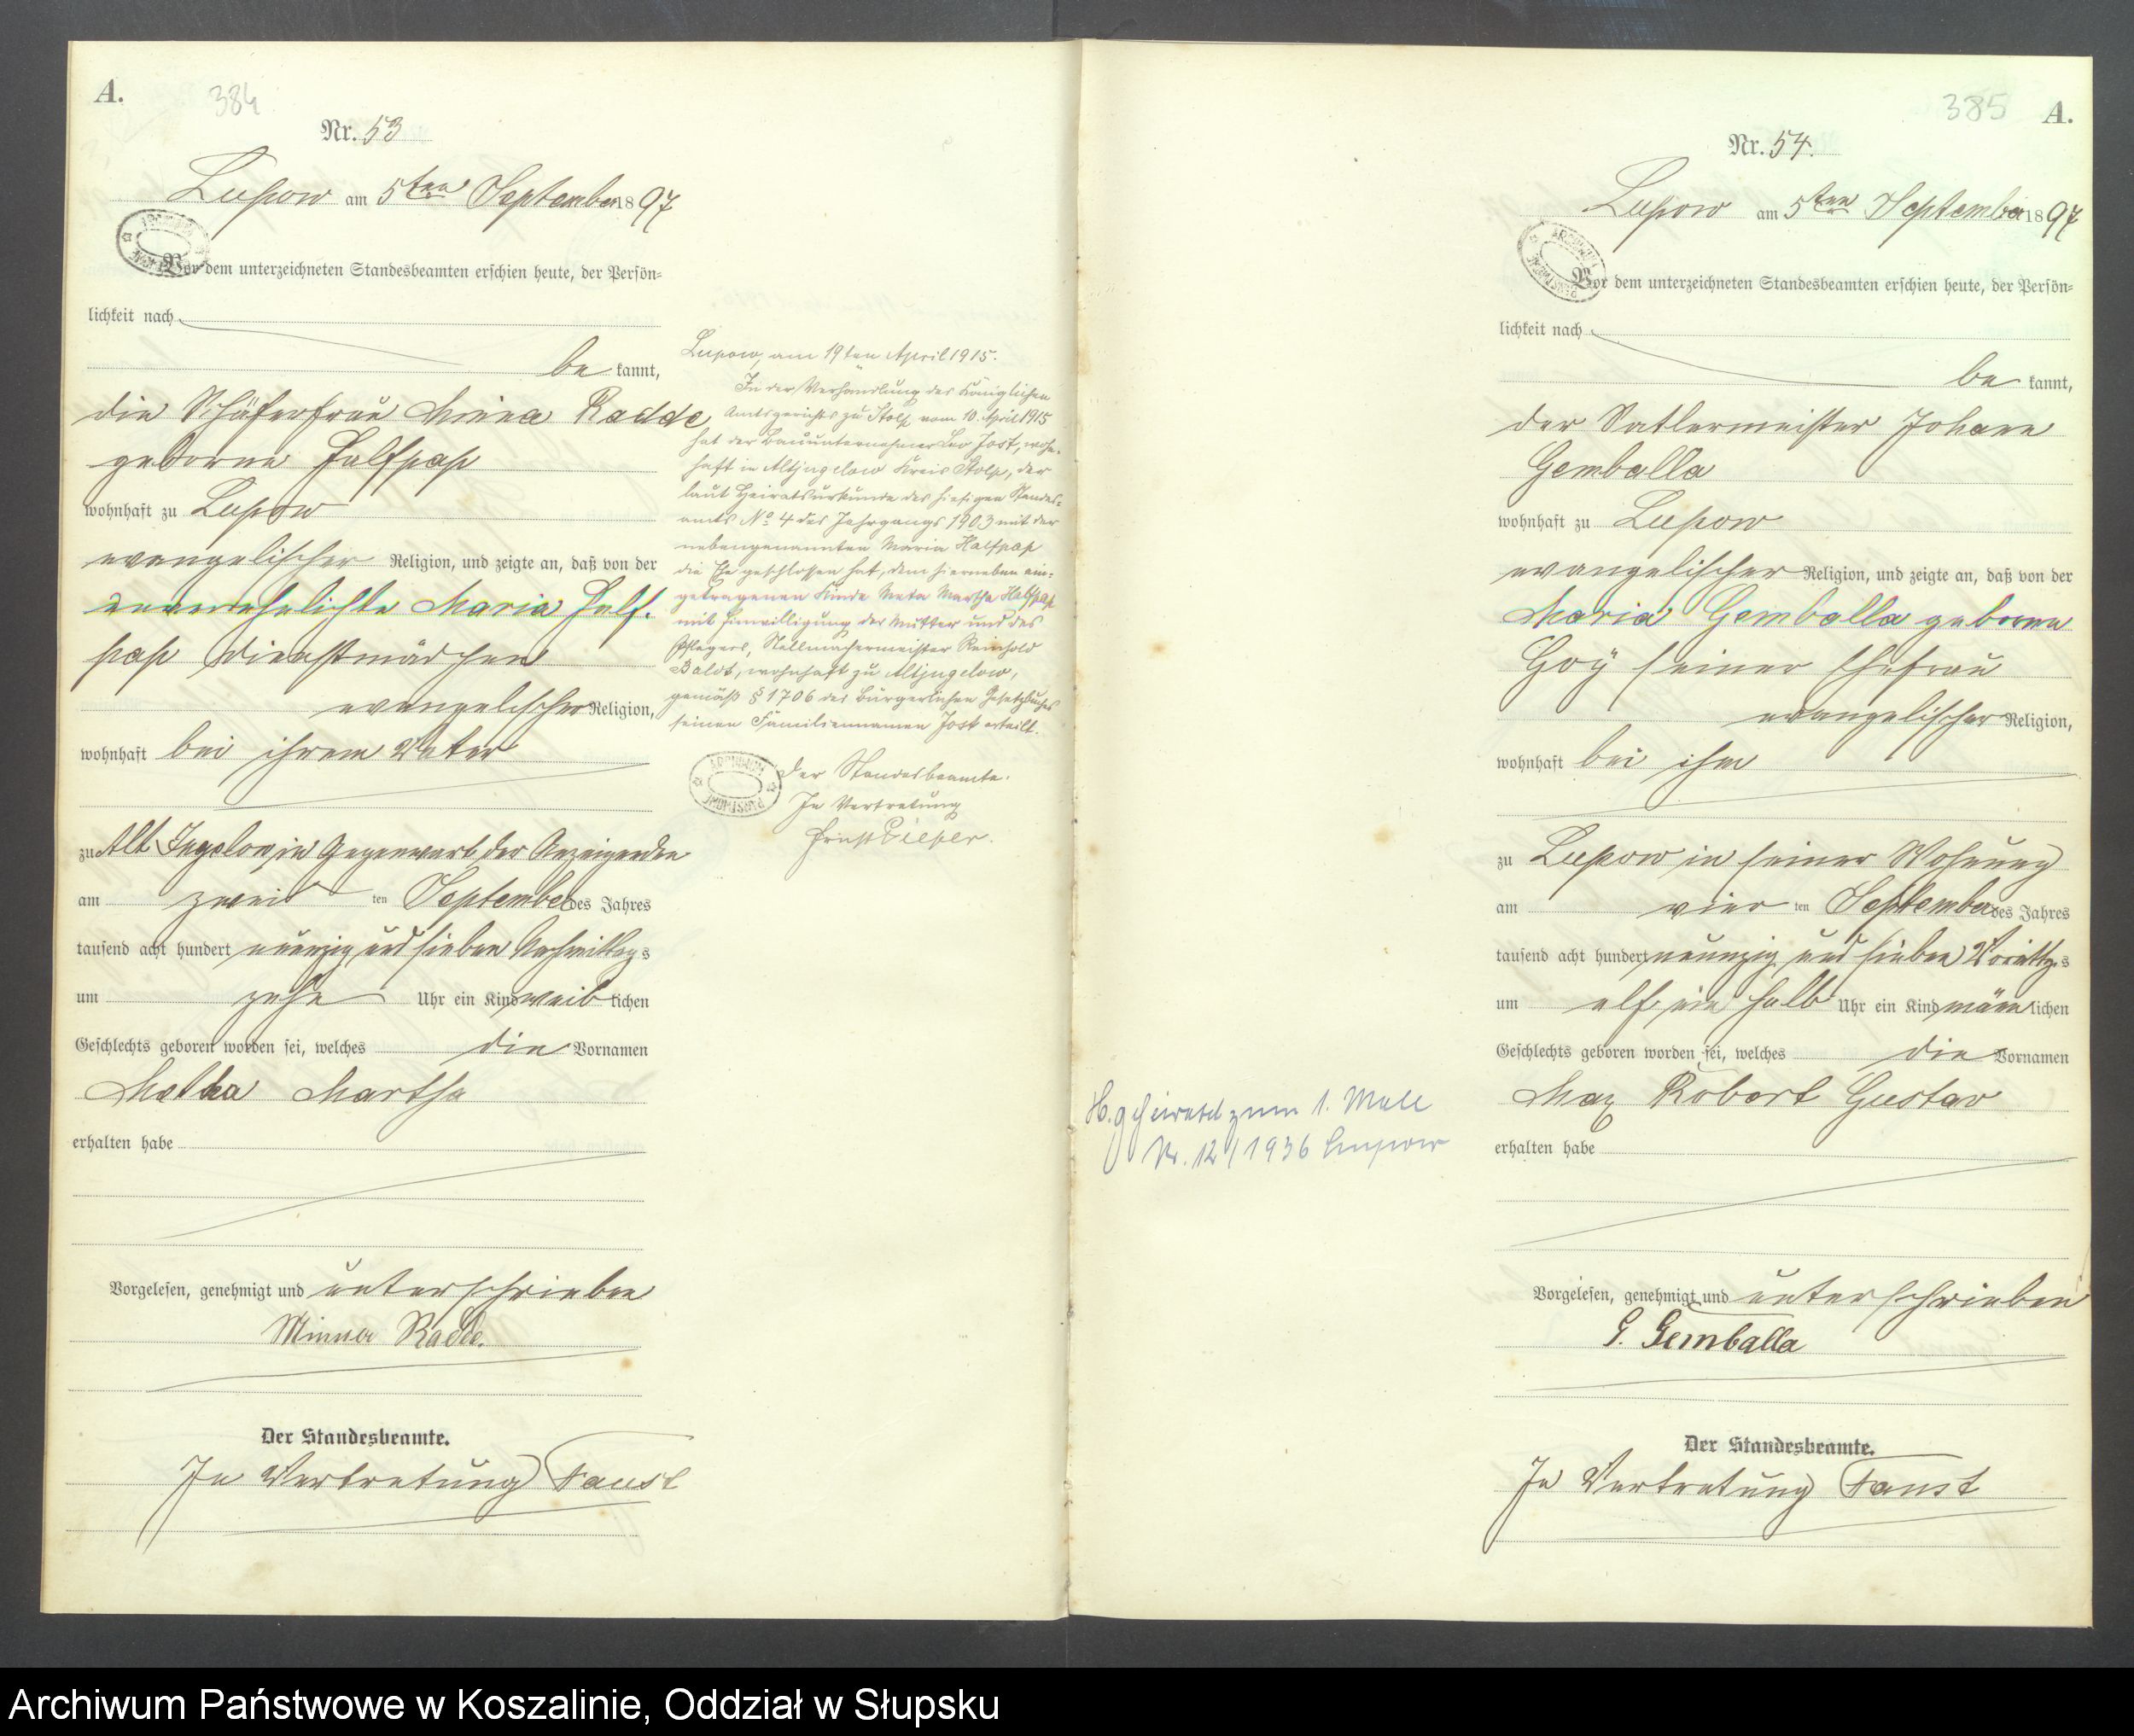 A.
384
Nr. 53
Lupow am 5ten September 1897
Vor dem unterzeichneten Standesbeamten erschien heute, der Persön=
lichkeit nach
be kannt,
die Schäferfrau Minna Radde
geborene Halfpap
wohnhaft zu Lupow
evangelischer Religion, und zeigte an, daß von der
unverehelichte Maria Half-
pap Dienstmädchen
evangelischer Religion,
wohnhaft bei ihrem Vater
zu Alt Jugelow, in Gegenwart der Anzeigenden
am zwei ten September des Jahres
tausend acht hundert neunzig und sieben Nachmittags
um zehn Uhr ein Kind weib lichen
Geschlechts geboren worden sei, welches die Vornamen
Martha
erhalten habe
Vorgelesen, genehmigt und unterschrieben
Minna Radde.
Der Standesbeamte.
In Vertretung Faust
Lupow, am 19ten April 1915.
In der Verhandlung des Königlichen
Amtsgerichts zu Stolp vom 10. April 1915
hat der Bauunternehmer Leo Jost, wohn-
haft in Altjugelow Kreis Stolp, der
laut Heiratsurkunde des hiesigen Standes=
amts No 4 des Jahrgangs 1903 mit der
nebengenannten Maria Halfpap
die Ehe geschlossen hat, dem hierneben ein=
getragenen Kinde Meta Martha Halfpap
mit Einwilligung der Mutter und des
Pflegers, Stellmachermeister Reinhold
wohnhaft zu Altjugelow,
gemäß § 1706 des Bürgerlichen Gesetzbuches
seinen Familiennamen Jost erteilt.
Der Standesbeamte.
In Vertretung
Ernst Pieper.
385
A.
Nr. 54.
Lupow am 5ten September 1897
Vor dem unterzeichneten Standesbeamten erschien heute, der Persön=
lichkeit nach
be kannt,
der Satlermeister Johann
Gemballa
wohnhaft zu Lupow
evangelischer Religion, und zeigte an, daß von der
Maria Gemballa geborene
Goÿ seiner Ehefrau
evangelischer Religion,
wohnhaft bei ihm
zu Lupow in seiner Wohnung
am vier ten September des Jahres
tausend acht hundert neunzig und sieben Vormittgs
um elf ein halb Uhr ein Kind männ lichen
Geschlechts geboren worden sei, welches die Vornamen
Max Robert Gustav
erhalten habe
Vorgelesen, genehmigt und unterschrieben
Gemballa
Der Standesbeamte.
In Vertretung Faust
H. geheiratet zum 1. Male
Nr. 12/1936 Lupow
Archiwum Państwowe w Koszalinie, Oddział w Słupsku